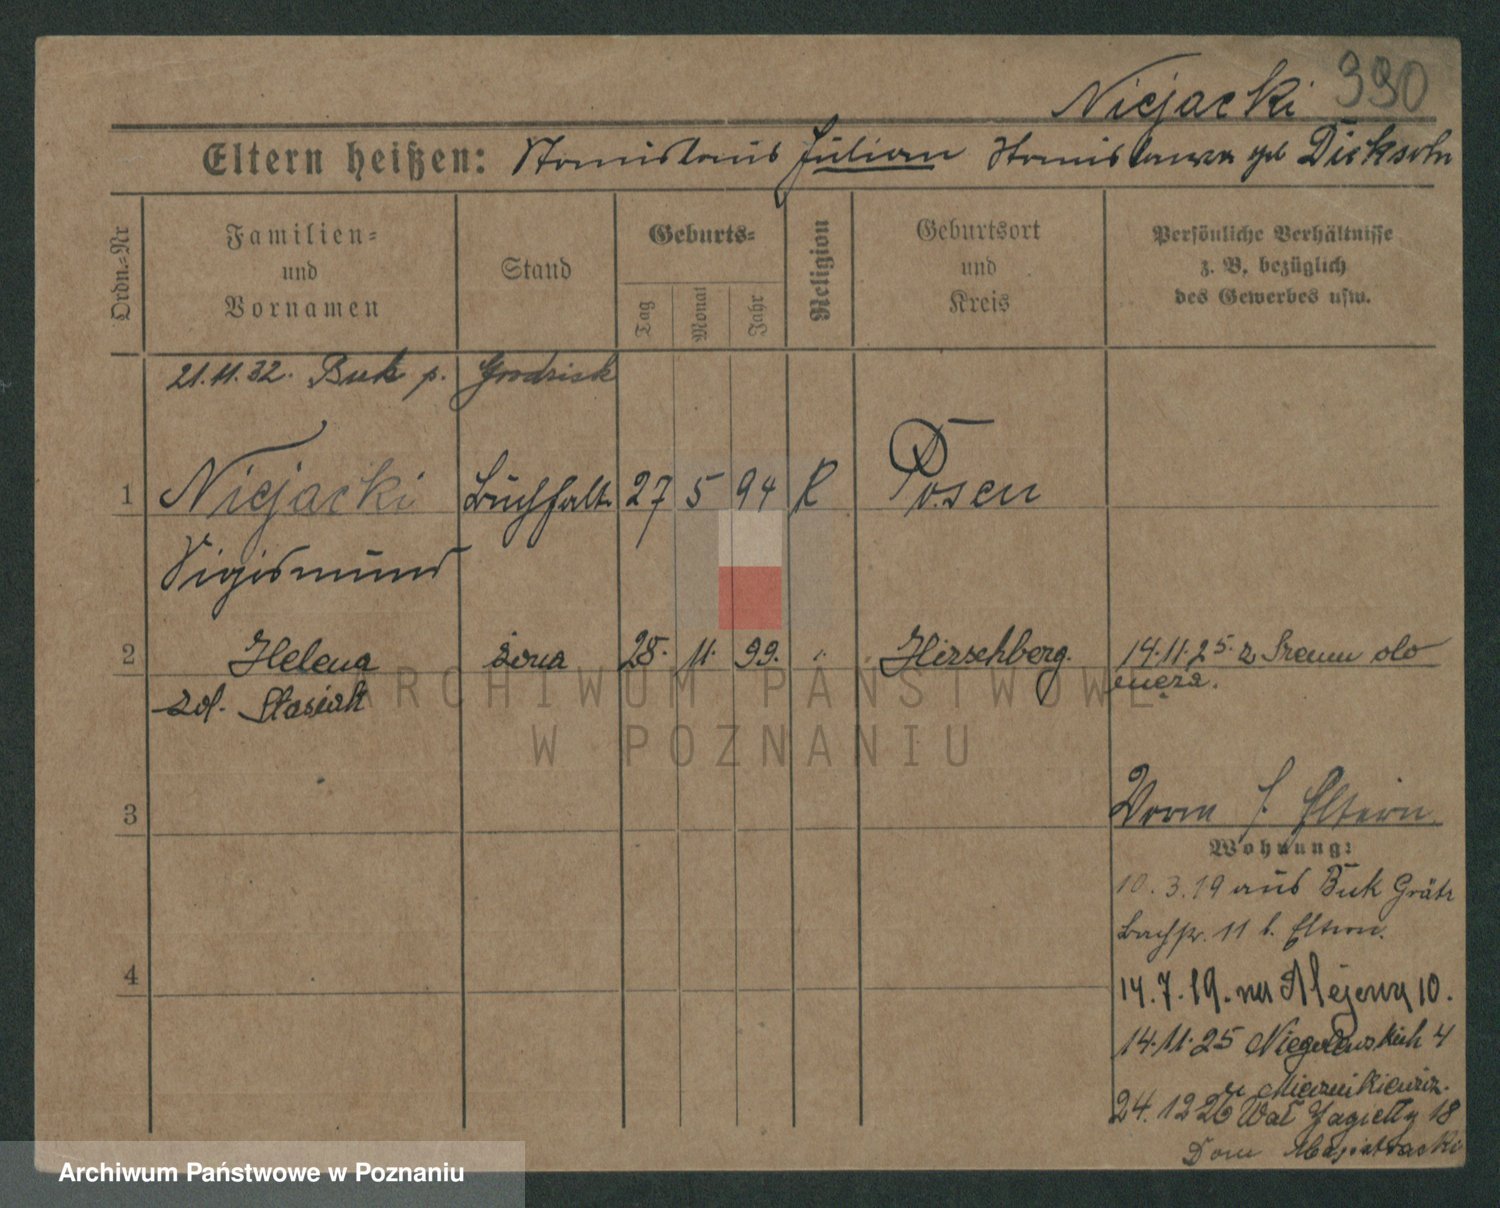 Niejacki 390
Eltern heißen: Stanislaus Julian Stanislawa geb Dicksohn
Ordn.-Nr
Familien- und Vornamen
Stand
Geburts-
Tag
Monat
Jahr
Religion
Geburtsort und Kreis
Persönliche Verhältnisse z. B. bezüglich des Gewerbes usw.
21.11.32. Buk p. Grodzisk
1 Niejacki Buchhalt. 27 5 94 K Posen
Sigismund
2 Helena żona 28. 11. 99. " Hirschberg. 14.11.25. z Śremu do
męża.
zd. Stasiak
3
Worm f. Eltern
Wohnung:
10.3.19 aus Buk Grätz
Bachstr. 11 b. Eltern.
4
14.7.19. na Alejową 10.
14.11.25 Niegolewskich 4
24.12 26 Wał Jagiełły 18
Dom
ARCHIWUM PAŃSTWOWE
W POZNANIU
Archiwum Państwowe w Poznaniu